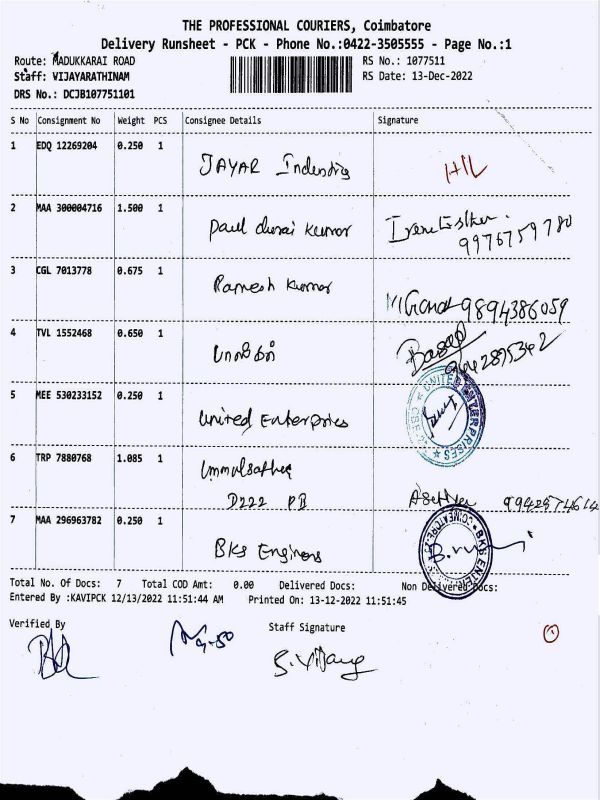 THE PROFESSIONAL COURIERS, Coimbatore
Delivery Runsheet - PCK - Phone No.:0422-3505555 - Page No.:1
Route: MADUKKARAI ROAD RS No.: 1077511
Staff: VIJAYARATHINAM RS Date: 13-Dec-2022
DRS No.: DCJB107751101
S No Consignment No Weight PCS Consignee Details Signature
1 EDQ 12269204 0.250 1
JAYAR
2 MAA 300004716 1.500 1
Paul durai kumar
9976759780
3 CGL 7013778 0.675 1
Ramesh kumar
9894386059
4 TVL 1552468 0.650 1
5 MEE 530233152 0.250 1
UNITED ENTERPRISES
United Enterprises
6 TRP 7880768 1.085 1
D222 PB
7 MAA 296963782 0.250 1
BKS
Total No. Of Docs: 7 Total COD Amt: 0.00 Delivered Docs: Non Delivered Docs:
Entered By :KAVIPCK 12/13/2022 11:51:44 AM Printed On: 13-12-2022 11:51:45
Verified By Staff Signature